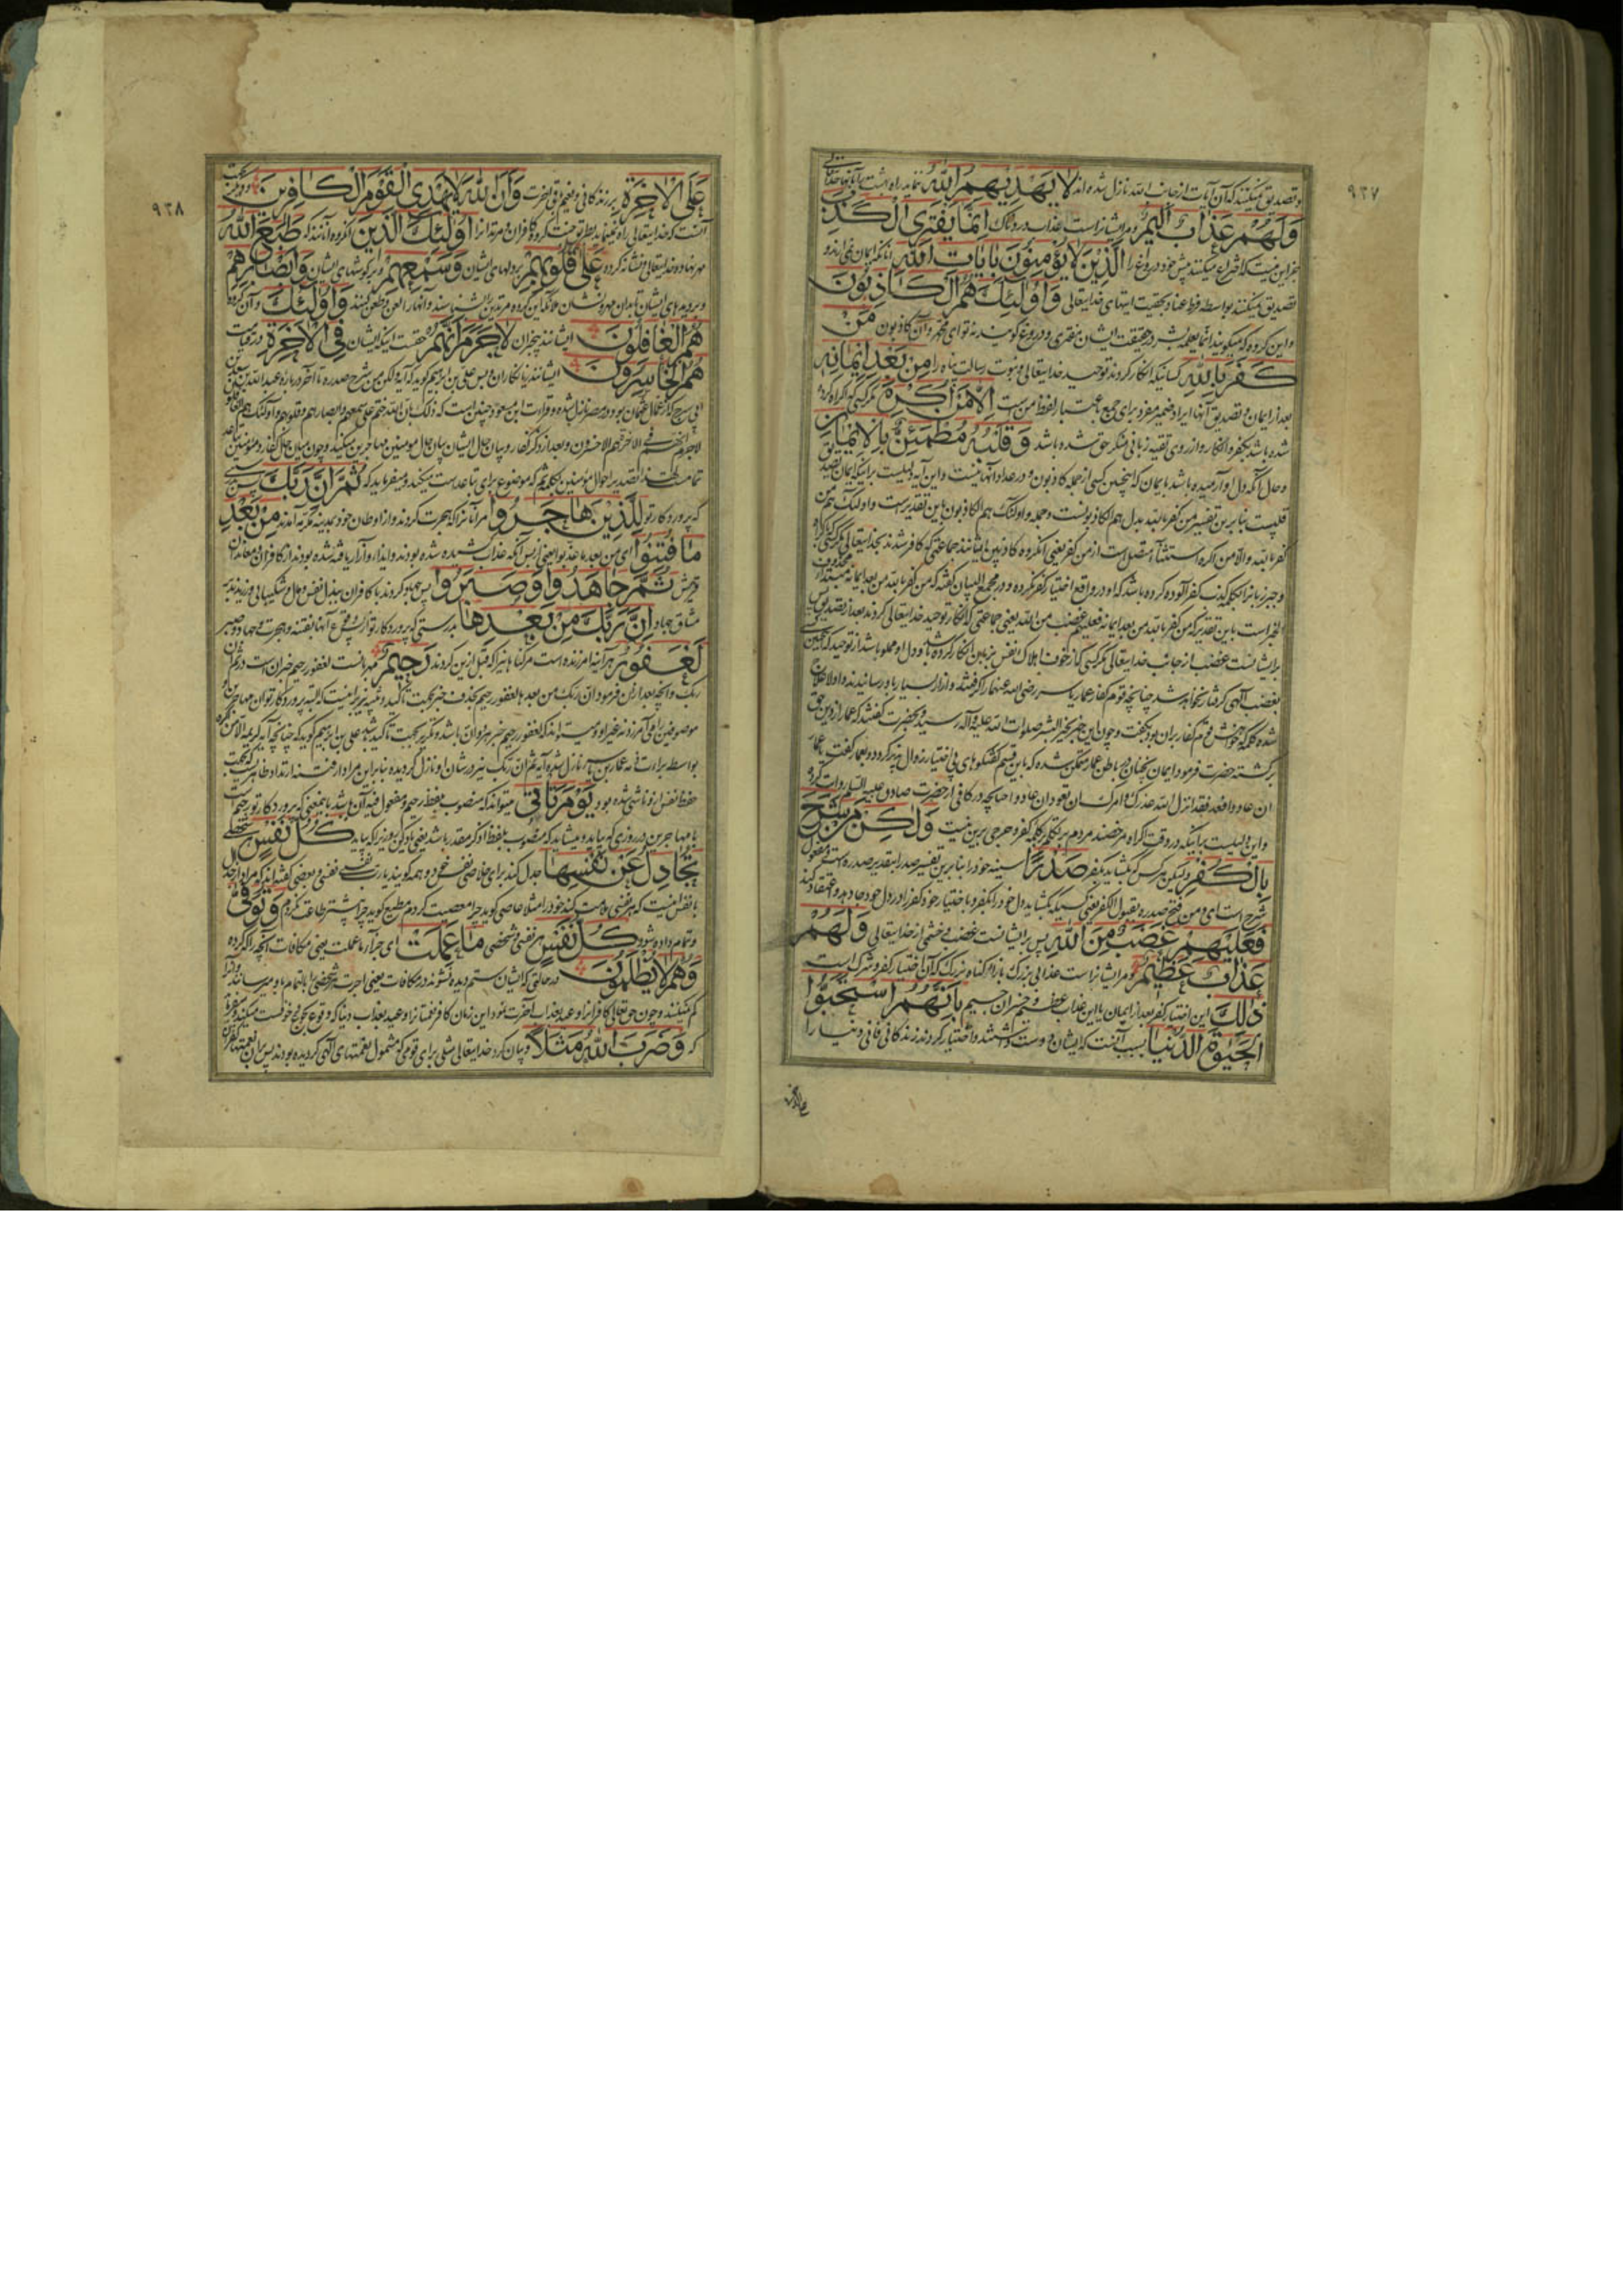 ۹۲۷
و تصدیق نمیکنند که آن آیات از جانب الله نازل شده اند لا یَهْدِیهِمُ اللهُ ننماید راه بهشت
وَلَهُمْ عَذابٌ اَلیمٌ و مر ایشانراست عذاب دردناک اِنَّما یَفْتَرِی الْکَذِبَ
جز این نیست که اختراع میکنند پیش خود دروغ را الَّذینَ لا یُؤْمِنُونَ بِایاتِ اللهِ آنانکه ایمان نمی آرند و
تصدیق نمیکنند بواسطه فرط عناد بحقیت آیتهای خدایتعالی وَ اُولئِکَ هُمُ الْکاذِبُونَ
و این گروه که میگویند انما یعلمه بشر در حقیقت ایشان مفتری و دروغ گویند نه تو ای محمد و آن کاذبون مَنْ
کَفَرَ بِاللهِ کسانیکه انکار کردند توحید خدایتعالی و نبوت رسالت پناه را مِنْ بَعْدِ ایمانِهِ
بعد از ایمان و تصدیق آنها ایراد ضمیر مفرد برای جمع باعتبار لفظ من است اِلّا مَنْ اُکْرِهَ مگر کسی که اکراه کرده
شده باشد بکفر و انکار و از روی تقیه زبانی منکر حق شده باشد وَ قَلْبُهُ مُطْمَئِنٌّ بِالْایمانِ
و حال آنکه دل او آرمیده باشد بایمان که اینچنین کسی از جمله کاذبون و در عداد آنها نیست و این آیه دلیلست بر اینکه ایمان تصدیق
قلبیست بنابرین تفسیر من کفر بالله بدل هم الکاذبونست و جمله و اولئک هم الکاذبون باین تقدیر
کفر بالله و الا من اکره استثنا متصل است از من کفر یعنی آنگروه کاذبین ایشانند جماعتی که کافر شدند بخدایتعالی مگر کسی که
و جبر زبانرا بکلمه کذب کفر آلوده کرده باشد که او در واقع اختیار کفر نکرده و در مجمع البیان گفته که من کفر بالله من بعد ایمانه مبتدا
الخبر است باین تقدیر که من کفر بالله من بعد ایمانه فعلیهم غضب من الله یعنی جماعتی که انکار توحید خدایتعالی کردند بعد از تصدیق پس
بر ایشانست غضب از جانب خدایتعالی مگر کسی که از خوف اهلاک نفس بزبان انکار کرده باشد و دل او مملو باشد از توحید که اینچنین کسی
بغضب الهی گرفتار نخواهد شد چنانچه قوم کفار عمار یاسر رضی الله عنهما را گرفتند و آزار بسیار باو رسانیدند
شده کلمه که خواهش قوم کفار بران بود بگفت و چون این خبر بخیر البشر صلوات الله علیه و آله رسید و بحضرت گفتند که عمار از دین حق
برگشته حضرت فرمود ایمان چنان در باطن عمار متمکن شده که باین قسم گفتگوهای بی اختیار زوال پذیر گردد و بعمار گفت یا عمار
ان عادوا فعد فقد انزل الله عذرک و امرک ان تعود ان عادوا چنانچه در کافی از حضرت صادق علیه السلام روایت کرده
و این دلیلست بر اینکه در وقت اکراه مرخصند مردم بر تکلم بکلمه کفر و حرجی برین نیست وَلکِنْ مَنْ شَرَحَ
بِالْکُفْرِ ولیکن هر کس که بگشاید بکفر صَدْرًا سینه خود را بنابرین تفسیر صدرا بتقدیر صدره است و مفعول
شرح است ای من فتح صدره بقبول الکفر یعنی کسیکه بگشاید دل خود را بکفر و باختیار خود کفر را در دل خود جا دهد و اعتقاد کند
فَعَلَیْهِمْ غَضَبٌ مِنَ اللهِ پس بر ایشانست غضب و خشمی از خدایتعالی وَلَهُمْ
عَذابٌ عَظیمٌ و مر ایشانراست عذابی بزرگ بازاء گناه بزرگ که آن اختیار کفر و شرک است
ذلِکَ این اختیار کفر بعد از ایمان یا این عذاب عظیم و خسران جسیم بِاَنَّهُمُ اسْتَحَبُّوا
الْحَیوةَ الدُّنْیا بسبب آنست که ایشان دوست داشتند و اختیار کردند زندگانی فانی دنیا را
علی الاخرة
۹۲۸
عَلَی الْاخِرَةِ بر زندگانی و نعیم باقی آخرت وَ اَنَّ اللهَ لا یَهْدِی الْقَوْمَ الْکافِرینَ
آنست که خدایتعالی راه ننماید بطریق جنت گروه کافران و مرتدانرا اُولئِکَ الَّذینَ آنگروه آنانند که طَبَعَ اللهُ
مهر نهاده خدایتعالی و نشانه کرده عَلی قُلُوبِهِمْ بر دلهای ایشان وَسَمْعِهِمْ و بر گوشهای ایشان وَاَبْصارِهِمْ
و بر دیده های ایشان تا بدان مهر و نشان ملائکه این گروه مرتدین را بشناسند و آنها را لعن و طعن کنند وَ اُولئِکَ و آن گروه
هُمُ الْغافِلُونَ ایشانند بیخبران لا جَرَمَ اَنَّهُمْ حقست اینکه ایشان فِی الْاخِرَةِ در قیامت
هُمُ الْخاسِرُونَ ایشانند زیانکاران و پس علی بن ابراهیم گوید که آیه ولکن من شرح صدره تا آخر درباره عبدالله بن سعد بن
ابی سرح که از عمال عثمان بود و در مصر نازل شده و قرائت ابن مسعود چنین است که ذلک بان الله ختم علی سمعهم و ابصارهم و قلوبهم و اولئک هم الغافلون
لا جرم انهم فی الآخرة هم الاخسرون و بعد از ذکر کفار و بیان حال ایشان بیان حال مومنین مهاجرین میکند و چون میان حال کفار و مؤمنین تباعد
تمامست تصدیر احوال مؤمنین بکلمه ثم که موضوع برای تباعدست میکند و میفرماید که ثُمَّ اِنَّ رَبَّکَ پس بدرستی
که پروردگار تو لِلَّذینَ هاجَرُوا مر آنانرا که هجرت کردند و از اوطان خود بمدینه طیبه آمدند مِنْ بَعْدِ
ما فُتِنُوا ای من بعد ما عذبوا یعنی از پس آنکه عذاب کشیده شده بودند و ایذا و آزار یافته شده بودند از کافران و معاندان
قریش ثُمَّ جاهَدُوا وَصَبَرُوا پس جهاد کردند با کافران ببذل نفس و مال و شکیبائی ورزیدند به
مشاق جهاد اِنَّ رَبَّکَ مِنْ بَعْدِها بدرستی که پروردگار تو از پس وقوع آنها بفتنه و هجرت و جهاد و صبر
لَغَفُورٌ هر آینه آمرزنده است مر گناهانیرا که قبل ازین کردند رَحیمٌ مهربانست لغفور رحیم خبر ان است در ثم ان
ربک و آنچه بعد از ان فرموده ان ربک من بعدها لغفور رحیم
موصوفین را
بواسطه برائت ذمه عمار بن یاسر نازل شده آیه ثم ان ربک نیز در شان او نازل گردیده بنابراین مراد از فتنه ارتداد ظاهریست که بجهت
حفظ نفس از او ناشی شده بود یَوْمَ تَأْتی میتواند که منصوب بلفظ رحیم و مفعول فیه آن باشد باینمعنی که پروردگار تو رحیم است
با مهاجرین در روزی که بیاید و میشاید که منصوب بلفظ اذکر مقدر باشد یعنی یاد کن روزیرا که بیاید کُلُّ نَفْسٍ
تُجادِلُ عَنْ نَفْسِها جدل کند برای خلاصی نفس خود و همه گویند یا رب نفسی نفسی و بعضی گفته اند که مراد از جدال
با نفس اینست که هر نفسی ملامت کند خود را مثلا عاصی گوید چرا معصیت کردم مطیع گوید چرا بیشتر طاعت نکردم وَتُوَفّی
و تمام داده شود کُلُّ نَفْسٍ هر نفسی و شخصی ما عَمِلَتْ ای جزاء ما عملت یعنی مکافات آنچه را که کرده
وَهُمْ لا یُظْلَمُونَ در حالتی که ایشان ستم دیده نشوند در مکافات یعنی اجرت هر شخصی را بالتمام باو میرسانند و از آن
کم نمیکنند و چون حق تعالی کافرانرا وعید بعذاب آخرت نمود این زمان کافر نعمتانرا وعید بعذاب دنیا که وقوع
که وَضَرَبَ اللهُ مَثَلًا و بیان کرد خدایتعالی مثلی برای قومی که مشمول بنعمتهای الهی گردیده بودند